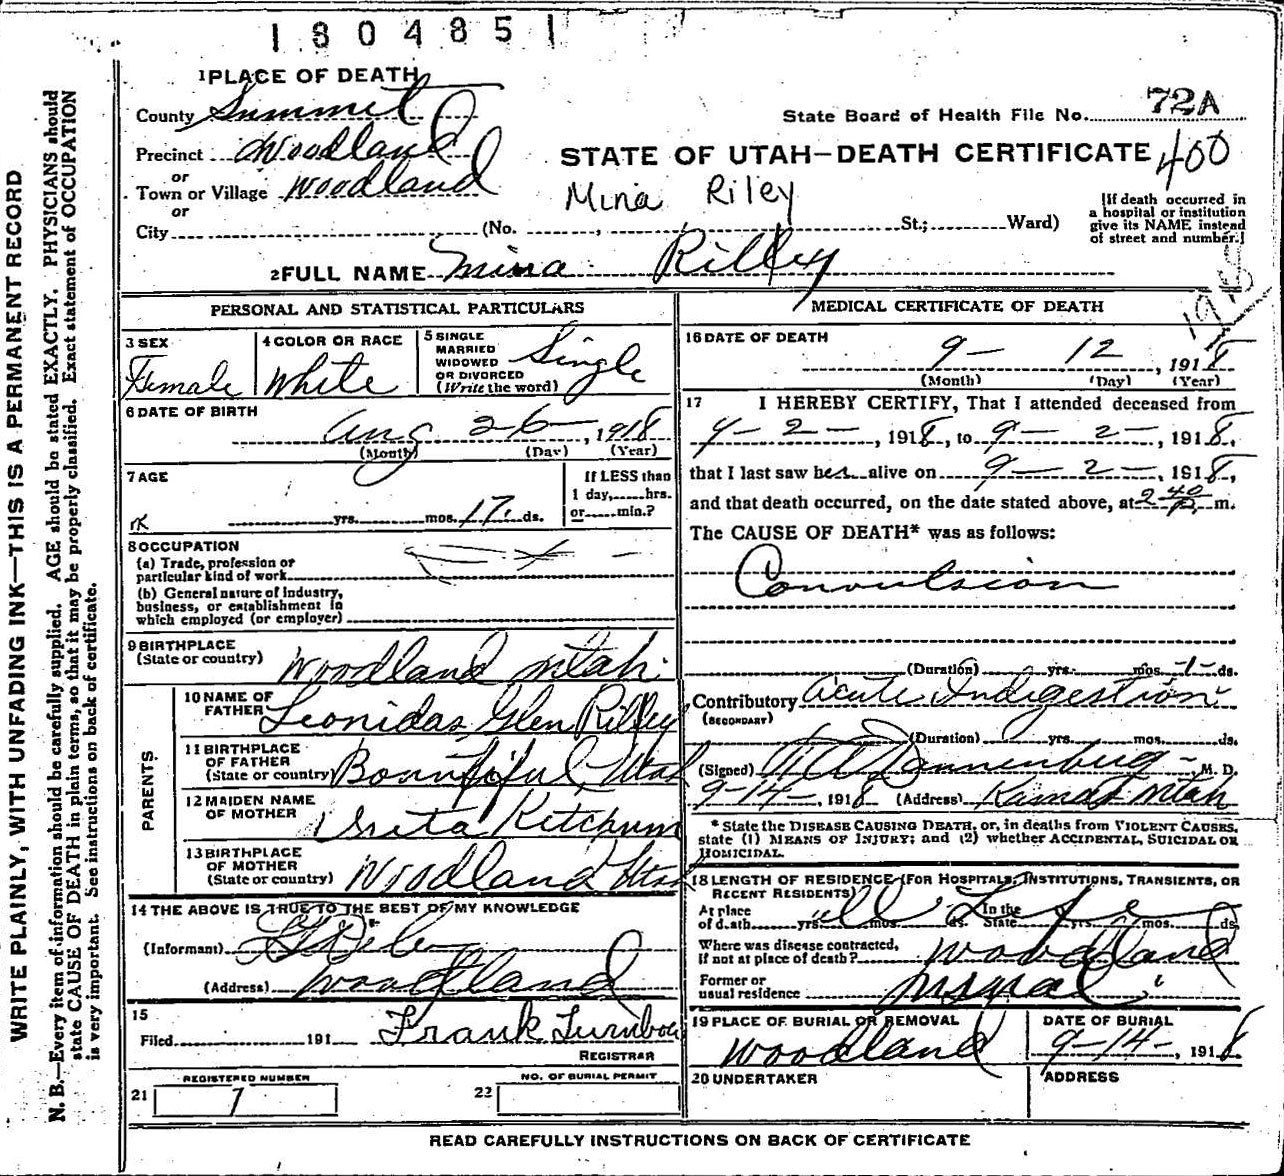 1804851
1 PLACE OF DEATH
County Summit
State Board of Health File No. 72A
Precinct Woodland
STATE OF UTAH—DEATH CERTIFICATE 400
or
Town or Village Woodland
Mina Riley
or
City (No. , St.; Ward)
[If death occurred in
a hospital or institution
give its NAME instead
of street and number.]
2 FULL NAME Mina Rilley
1918
PERSONAL AND STATISTICAL PARTICULARS
3 SEX
Female
4 COLOR OR RACE
White
5 SINGLE
MARRIED
WIDOWED
OR DIVORCED
(Write the word)
Single
6 DATE OF BIRTH
Aug 26 , 1918
(Month) (Day) (Year)
7 AGE
yrs. mos. 17 ds.
If LESS than
1 day, hrs.
or min.?
8 OCCUPATION
(a) Trade, profession or
particular kind of work
(b) General nature of industry,
business, or establishment in
which employed (or employer)
9 BIRTHPLACE
(State or country) Woodland Utah.
PARENTS
10 NAME OF
FATHER Leonidas Glen Rilley
11 BIRTHPLACE
OF FATHER
(State or country) Bountiful Utah
12 MAIDEN NAME
OF MOTHER Ketchum
13 BIRTHPLACE
OF MOTHER
(State or country) Woodland Utah
14 THE ABOVE IS TRUE TO THE BEST OF MY KNOWLEDGE
(Informant)
(Address) Woodland
15
Filed 191 Frank Turnbow
REGISTRAR
REGISTERED NUMBER
21 7
NO. OF BURIAL PERMIT
22
MEDICAL CERTIFICATE OF DEATH
16 DATE OF DEATH
9— 12 , 1918
(Month) (Day) (Year)
17 I HEREBY CERTIFY, That I attended deceased from
9—2— , 1918, to 9—2— , 1918,
that I last saw her alive on 9—2— , 1918,
and that death occurred, on the date stated above, at 2 40 P. m.
The CAUSE OF DEATH* was as follows:
Convulsion
(Duration) yrs. mos. -1- ds.
Contributory Acute Indigestion
(SECONDARY)
(Duration) yrs. mos. ds.
(Signed) Dannenberg M. D.
9-14- , 1918 (Address) Kamas Utah
* State the DISEASE CAUSING DEATH, or, in deaths from VIOLENT CAUSES,
state (1) MEANS OF INJURY; and (2) whether ACCIDENTAL, SUICIDAL OR
HOMICIDAL.
18 LENGTH OF RESIDENCE (FOR HOSPITALS, INSTITUTIONS, TRANSIENTS, OR
RECENT RESIDENTS)
At place
of death yrs. mos. ds. In the
State yrs. mos. ds.
all Life
Where was disease contracted,
if not at place of death? Woodland
Former or
usual residence
19 PLACE OF BURIAL OR REMOVAL
Woodland
DATE OF BURIAL
9-14- , 1918
20 UNDERTAKER
ADDRESS
READ CAREFULLY INSTRUCTIONS ON BACK OF CERTIFICATE
WRITE PLAINLY, WITH UNFADING INK—THIS IS A PERMANENT RECORD
N. B.—Every item of information should be carefully supplied. AGE should be stated EXACTLY. PHYSICIANS should
state CAUSE OF DEATH in plain terms, so that it may be properly classified. Exact statement of OCCUPATION
is very important. See instructions on back of certificate.